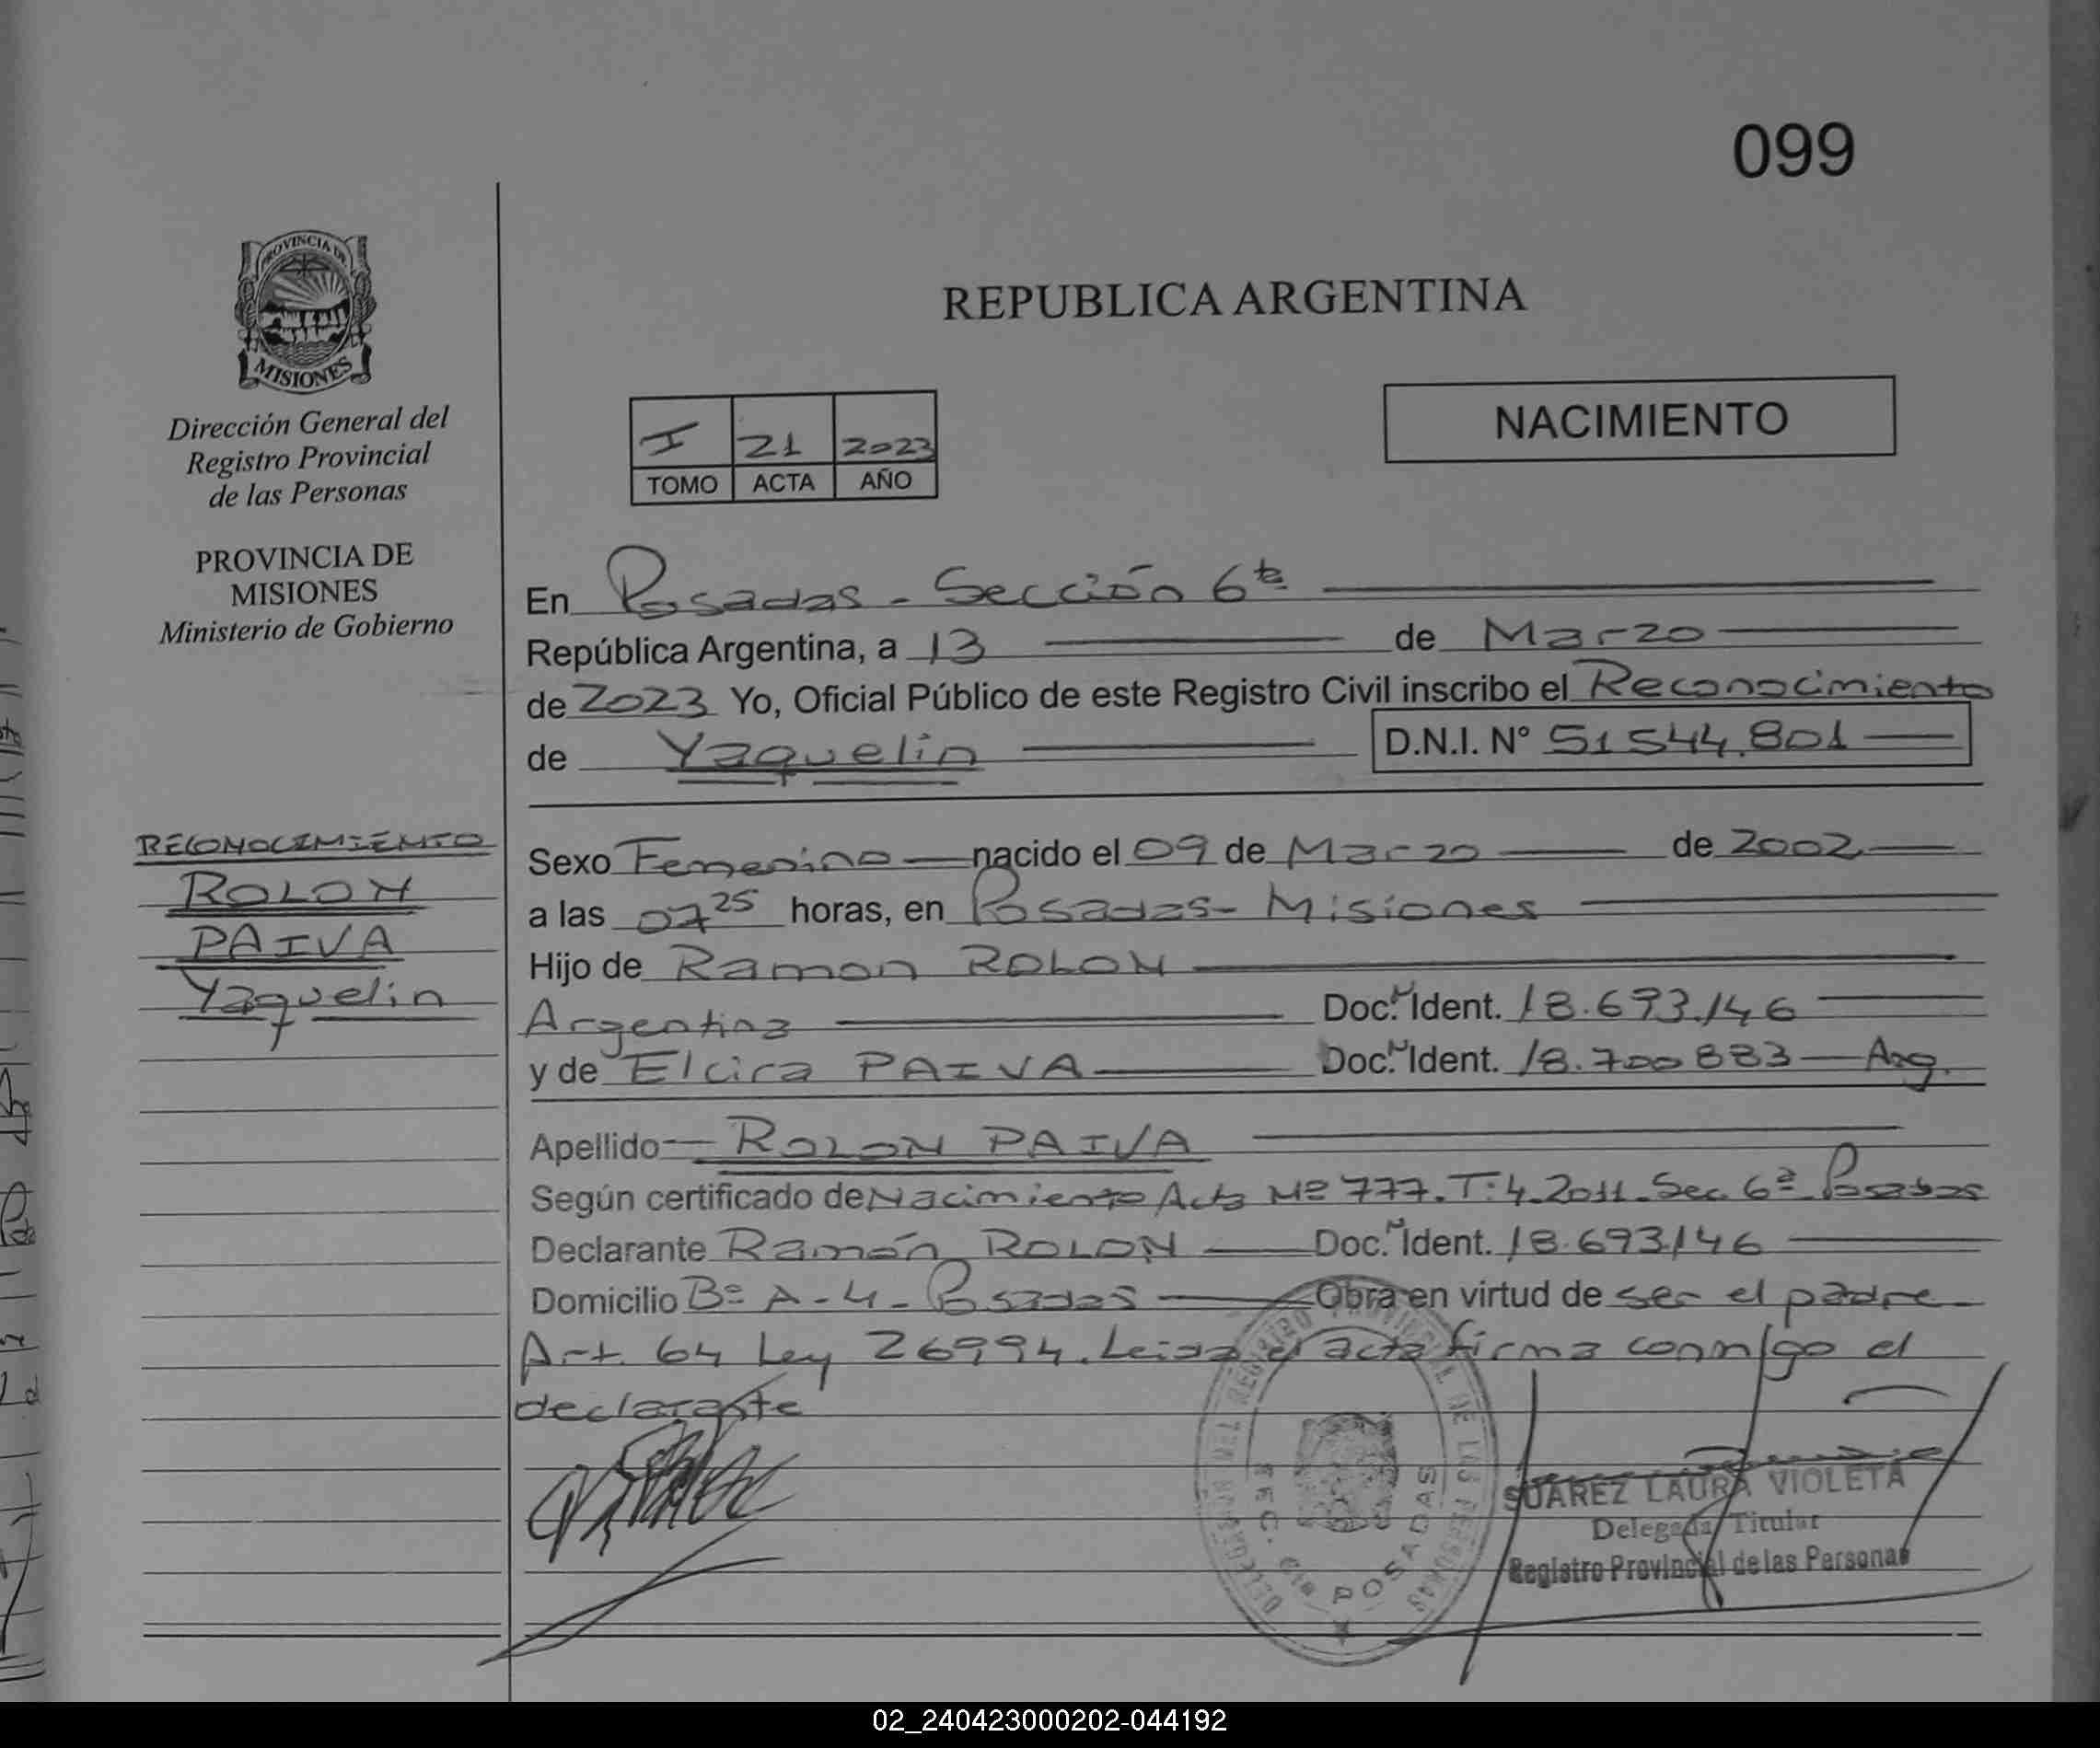 099
PROVINCIA DE
MISIONES
Dirección General del
Registro Provincial
de las Personas
PROVINCIA DE
MISIONES
Ministerio de Gobierno
RECONOCIMIENTO
ROLON
PAIVA
Yaquelin
REPUBLICA ARGENTINA
I 21 2023
TOMO ACTA AÑO
NACIMIENTO
En Posadas - Sección 6ta
República Argentina, a 13 de Marzo
de 2023 Yo, Oficial Público de este Registro Civil inscribo el Reconocimiento
de Yaquelin D.N.I. N° 51544.801
Sexo Femenino nacido el 09 de Marzo de 2002
a las 07 25 horas, en Posadas - Misiones
Hijo de Ramon ROLON
Argentina Doc. N Ident. 18.693.146
y de Elcira PAIVA Doc. N Ident. 18.700883 Arg.
Apellido ROLON PAIVA
Según certificado de Nacimiento Acta Nº 777. T:4. 2011. Sec. 6ª Posadas
Declarante Ramón ROLON Doc. N Ident. 18.693146
Domicilio Bº A-4- Posadas Obra en virtud de ser el padre
Art. 64 Ley 26994. Leida el acta firma conmigo el
declarante
DELEGACION DEL REGISTRO PROVINCIAL DE LAS PERSONAS
SEC. 6ta POSADAS
SUAREZ LAURA VIOLETA
Delegada Titular
Registro Provincial de las Personas
02_240423000202-044192